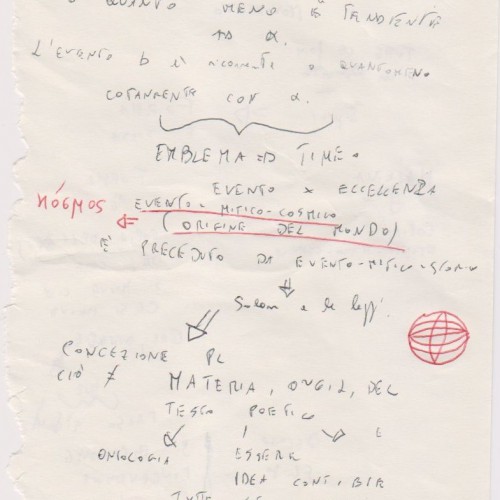 QUANTO MENO È TENDENTE
AD α.
L'EVENTO b È O QUANTOMENO
CON α.
EMBLEMA => TIMEO
EVENTO x ECCELLENZA
KÓSMOS
EVENTO-MITICO-COSMICO
(ORIGINE DEL MONDO)
È PRECEDUTO DA EVENTO-MITICO-STORICO
Solone e le leggi.
CONCEZIONE PL
CIÒ ≠ MATERIA, ORIGIN. DEL
TESTO POETICO
ONTOLOGIA ESSERE
IDEA